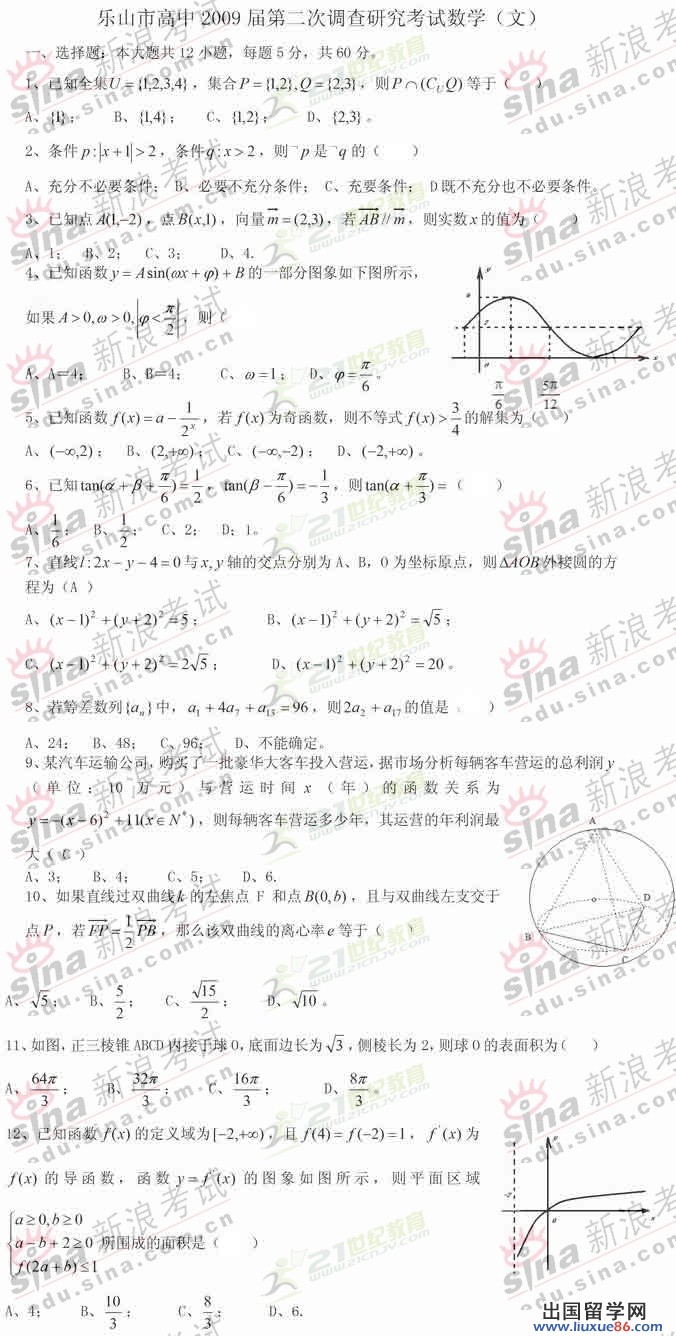 乐山市高中 2009 届第二次调查研究考试数学（文）
一、选择题：本大题共 12 小题，每题 5 分，共 60 分。
1、已知全集U = {1,2,3,4}，集合P = {1,2}, Q = {2,3}，则P∩(C_U Q)等于（    ）
A、{1}；    B、{1,4}；    C、{1,2}；    D、{2,3}。
2、条件p:|x+1|>2，条件q:x>2，则¬p是¬q的（    ）
A、充分不必要条件； B、必要不充分条件； C、充要条件； D 既不充分也不必要条件。
3、已知点A(1,−2)，点B(x,1)，向量m→=(2,3)，若AB→//m→，则实数x的值为（    ）
A、1； B、2； C、3；    D、4.
4、已知函数y = Asin(ωx+φ)+B的一部分图象如下图所示，
如果A>0,ω>0,|φ<π/2|，则（
A、A=4；    B、B=4；    C、ω=1； D、φ=π/6。
π/6    5π/12
5、已知函数f(x)=a−1/2^x，若f(x)为奇函数，则不等式f(x)>3/4的解集为（    ）
A、(−∞,2)； B、(2,+∞)； C、(−∞,−2)； D、(−2,+∞)。
6、已知tan(α+β+π/6)=1/2，tan(β−π/6)=−1/3，则tan(α+π/3)=（    ）
A、1/6； B、1/2； C、2； D；1。
7、直线l:2x−y−4=0与x,y轴的交点分别为 A、B，O 为坐标原点，则ΔAOB外接圆的方
程为（A ）
A、(x−1)²+(y+2)²=5；    B、(x−1)²+(y+2)²=√5；
C、(x−1)²+(y+2)²=2√5；    D、(x−1)²+(y+2)²=20。
8、若等差数列{a_n}中，a₁+4a₇+a₁₃=96，则2a₂+a₁₇的值是    ）
A、24； B、48； C、96；    D、不能确定。
9、某汽车运输公司，购买了一批豪华大客车投入营运，据市场分析每辆客车营运的总利润y
（单位：10 万元）与营运时间 x（年）的函数关系为
y=−(x−6)²+11(x∈N*)，则每辆客车营运多少年，其运营的年利润最
大（ C ）
A、3； B、4；    C、5； D、6.
10、如果直线过双曲线k 的左焦点 F 和点B(0,b)，且与双曲线左支交于
点P，若FP→=1/2PB→，那么该双曲线的离心率e等于（    ）
A、√5；    B、5/2；    C、√15/2；    D、√10。
A
O
B
C
D
11、如图，正三棱锥 ABCD 内接于球 O，底面边长为√3，侧棱长为 2，则球 O 的表面积为（    ）
A、64π/3；    B、32π/3；    C、16π/3；    D、8π/3。
12、已知函数f(x)的定义域为[−2,+∞)，且f(4)=f(−2)=1，f'(x)为
f(x)的导函数，函数y=f'(x)的图象如图所示，则平面区域
{a≥0,b≥0
a−b+2≥0 所围成的面积是（    ）
f(2a+b)≤1
A、4；    B、10/3；    C、8/3；    D、6.
sina 新浪考试
edu.sina.com.cn
21世纪教育
www.21cnjy.com
出国留学网
www.liuxue86.com